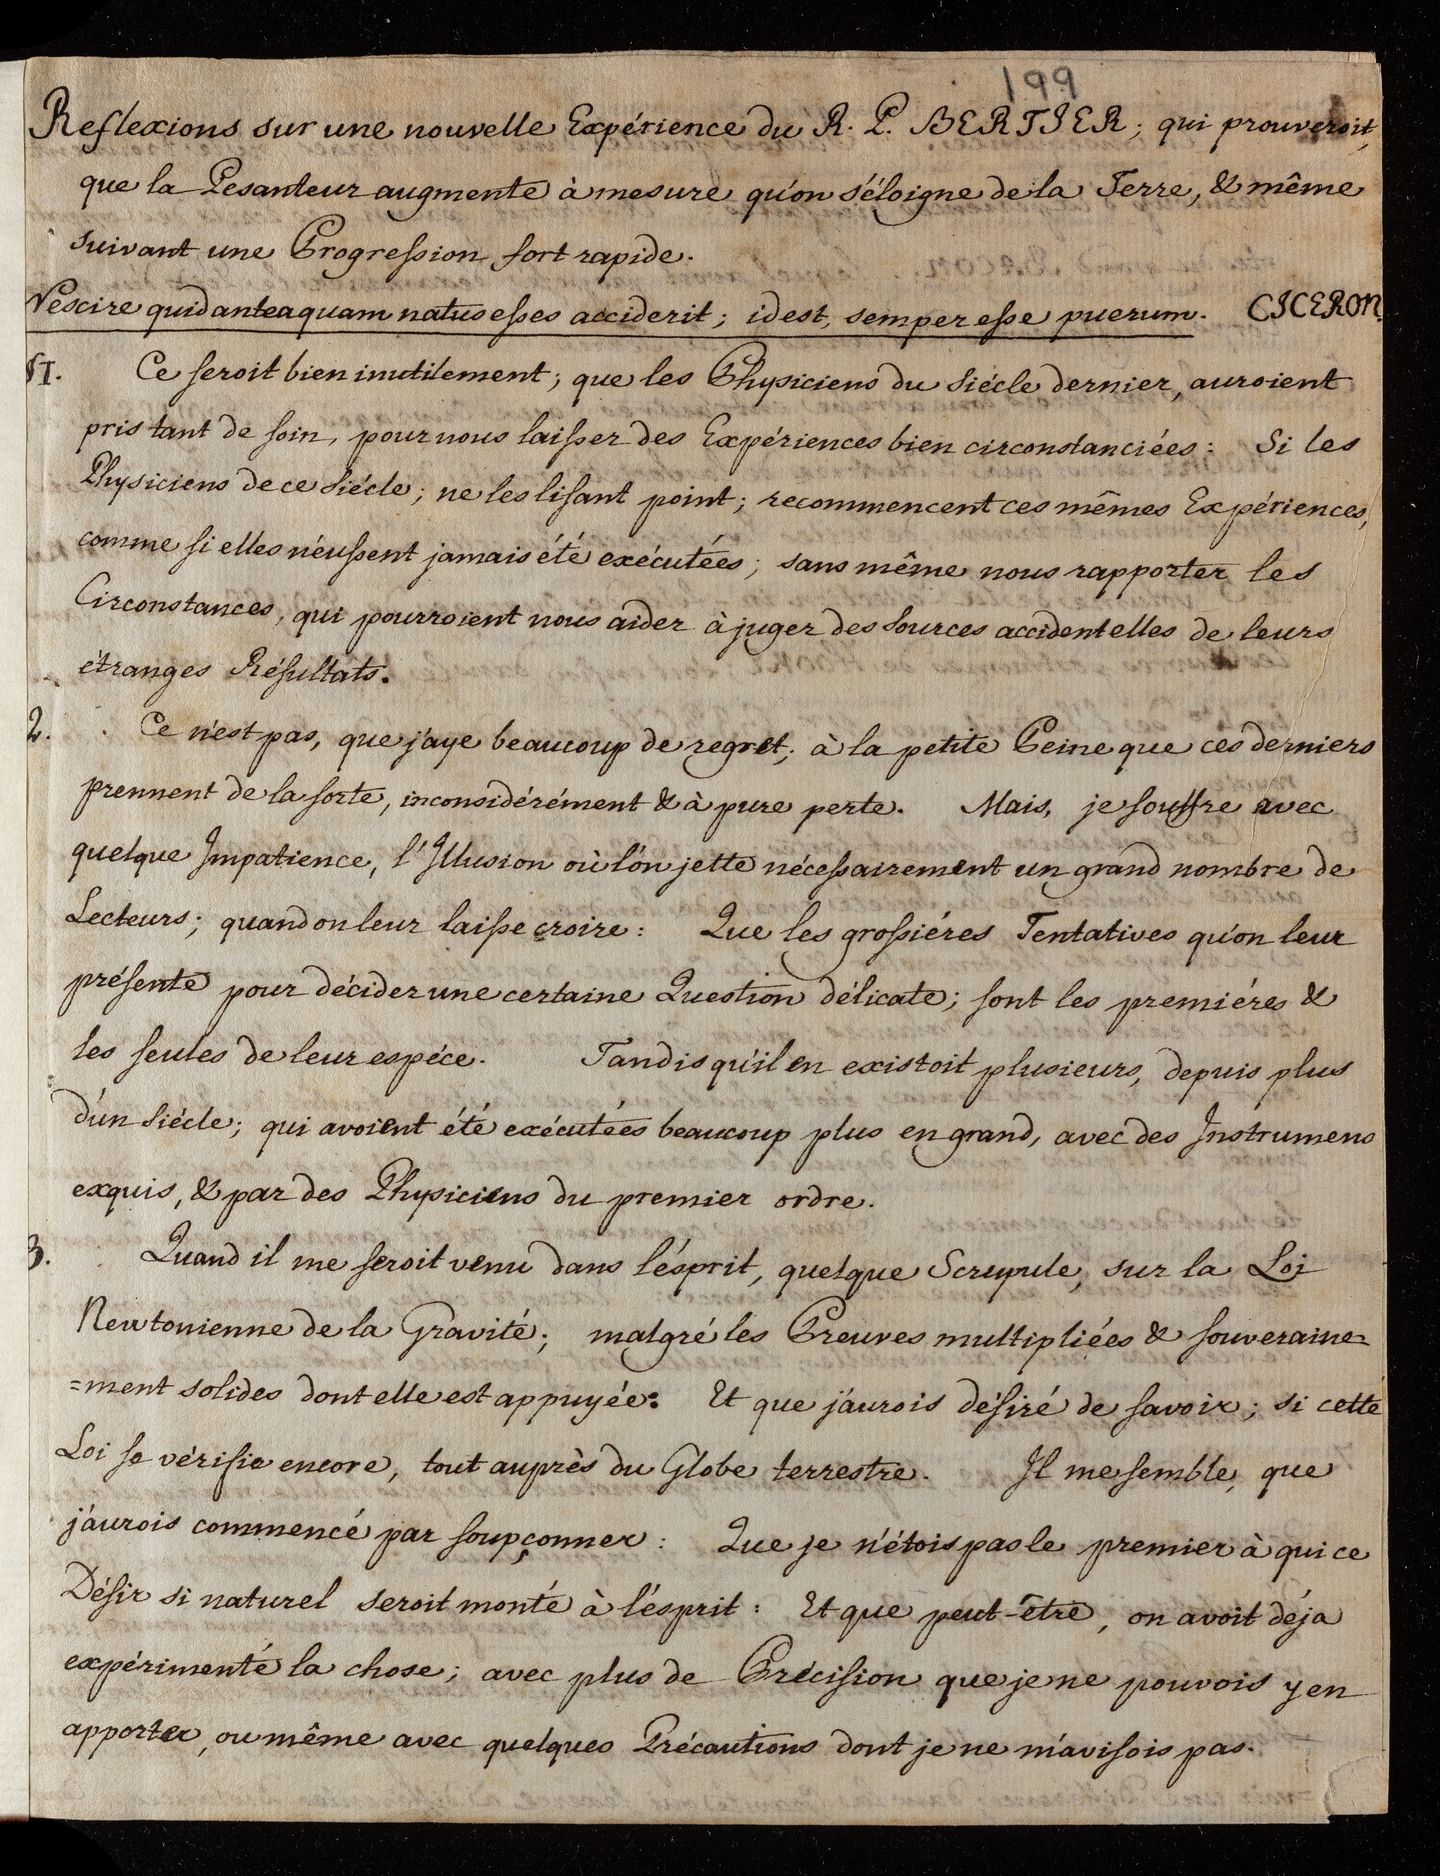 199
Reflexions sur une nouvelle Expérience du R. P. BERTIER; qui prouveroit,
que la Pesanteur augmente à mesure qu'on s'éloigne de la Terre, & même
suivant une Progression fort rapide.
Nescire quid antea quam natus esses acciderit; id est, semper esse puerum. CICERON.
§1. Ce seroit bien inutilement; que les Physiciens du Siécle dernier, auroient
pris tant de soin, pour nous laisser des Expériences bien circonstanciées: Si les
Physiciens de ce Siécle; ne les lisant point; recommencent ces mêmes Expériences,
comme si elles n'éussent jamais été exécutées; sans même nous rapporter les
Circonstances, qui pourroient nous aider à juger des Sources accidentelles de leurs
étranges Résultats.
2. Ce n'est pas, que j'aye beaucoup de regret; à la petite Peine que ces derniers
prennent de la sorte, inconsidérément & à pure perte. Mais, je souffre avec
quelque Impatience, l'Illusion où l'on jette nécessairement un grand nombre de
Lecteurs; quand on leur laisse croire: Que les grossiéres Tentatives qu'on leur
présente pour décider une certaine Question délicate; sont les premiéres &
les seules de leur espéce. Tandis qu'il en existoit plusieurs, depuis plus
d'un Siécle; qui avoient été exécutées beaucoup plus en grand, avec des Instrumens
exquis, & par des Physiciens du premier ordre.
3. Quand il me seroit venu dans l'ésprit, quelque Scrupule, sur la Loi
Newtonienne de la Gravité; malgré les Preuves multipliées & souveraine=
=ment solides dont elle est appuyée: Et que j'aurois désiré de savoir; si cette
Loi se vérifie encore, tout auprès du Globe terrestre. Il me semble, que
j'aurois commencé par soupçonner: Que je n'étois pas le premier à qui ce
Désir si naturel seroit monté à l'ésprit: Et que peut-être, on avoit déja
expérimenté la chose; avec plus de Précision que je ne pouvois y en
apporter, ou même avec quelques Précautions dont je ne m'avisois pas.